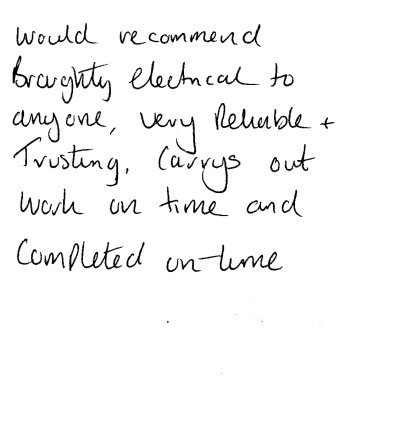 Would recommend
Braughty electrical to
anyone, very Reliable +
Trusting, Carrys out
Work on time and
Completed on-time